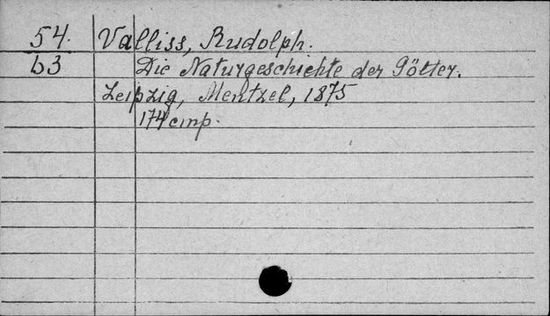 54. Valliss, Rudolph.
b3 Die Naturgeschichte der Götter.
Leipzig, Mentzel, 1875
174 cmp.